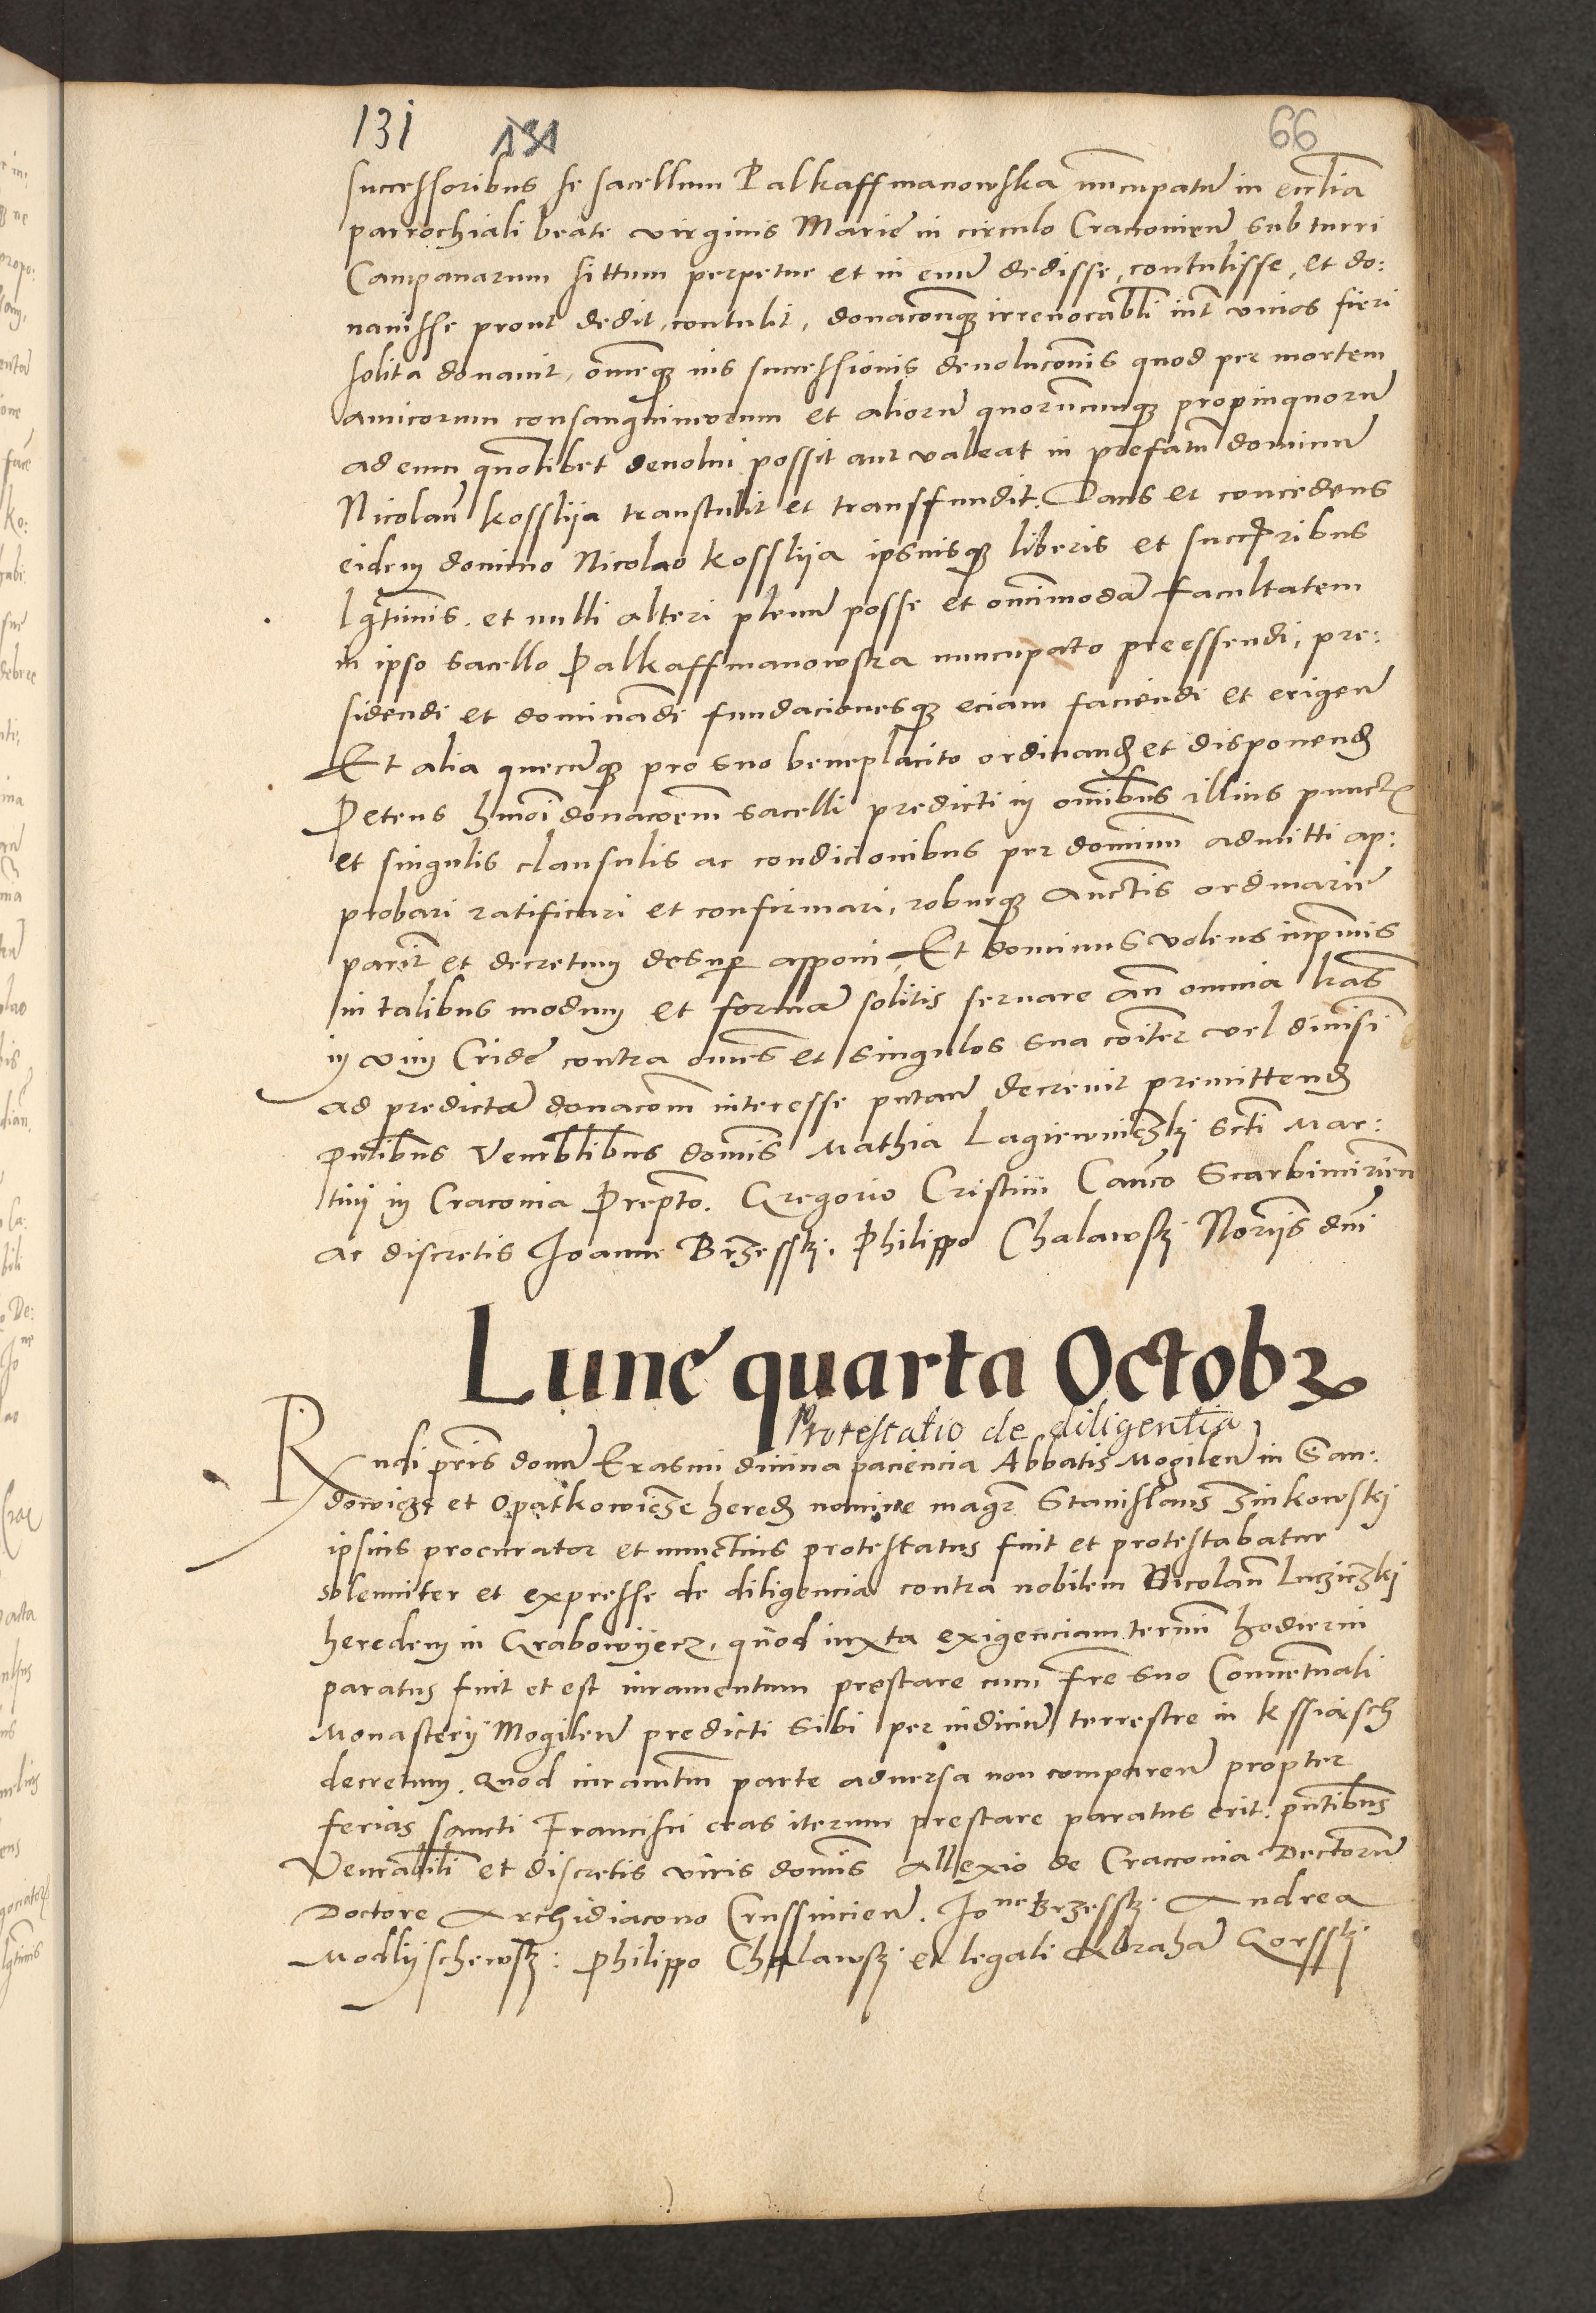 131 131 66
successoribus se sacellum Palkaffmanowska nuncupatū in ecclīa
parrochiali beate virginis Marie in circulo Cracovien̄ sub turri
Campanarum sittum perpetue et in evū dedisse, contulisse, et do:
navisse prout dedit, contulit, donacōneq3 irrevocabili int̄ vivos fieri
solita donavit, omneq3 ius successionis devolucōnis quod per mortem
amicorum consanguineorum et aliorū quorūcunq3 propinquorū
ad eum quōlibet devolui possit aut valeat in prefatū dominū
Nicolaū kosslija transtulit et transffundit. Dans et concedens
eidem domino Nicolao kosslija ipsiusq3 liberis et succ̄ribus
lgr̄timis. et nulli alteri plenū posse et omnimodā facultatem
in ipso sacello Palkaffmanowska nuncupato preessendi, pre:
sidendi et dominādi fundacionesq3 eciam faciendi et erigen̄
Et alia quecūq3 pro suo beneplacito ordinand̄ et disponend̄
Petens hmōi donacōem sacelli predicti in omībus illius punct̄
et singulis clausulis ac condicionibus per dominū admitti ap:
probari ratificari et confirmari, roburq3 Auctīs ordinarie
parit̄ et decretum desup̄ apponi, Et dominus volens inpmis
in talibus modum et formā solitis servare añ omnia lr̄as
in vim Cride contra omēs et singulos sua cōiter vel divisi
ad predictā donacōm interesse putan̄ decrevit premittend̄
Pn̄tibus Venerb̄libus domīs Mathia Lagiewniczkj Sctī Mar:
tini in Cracovia Prep̄to. Gregorio Cristini Canco Scarbimirien̄
ac discretis Joanne Brzesskj. Philippo Chalawskj Norijs dnī
Lune quarta Octobr3
Protestatio de diligentia
Rndi pr̄is domī Erasmi divina paciencia Abbatis Mogilen̄ in San:
dowicze et Opatkowicze hered̄ nomine magr̄ Stanislaus Zinkowskj
ipsius procurator et nunctius protestatus fuit et protestabatur
solenniter et expresse de diligencia contra nobilem Nicolaū Lucziczkj
heredem in Grabowijecz. quod iuxta exigenciam termī hodierni
paratus fuit et est iuramentum prestare cum fr̄e suo Conventuali
Monasterij Mogilen̄ predicti sibi per iudiciū terrestre in kssiasch
decretum. Quod iuramtm̄ parte adversa non comparen̄ propter
ferias sancti Francisci cras iterum prestare paratus erit. pn̄tibus
Venerabili et discretis viris domīs Allexio de Cracovia Doctorū
Doctore Archidiacono Crussvicien̄. Jo^ne Brzesskj Andrea
Modlijschewskj: Philippo Chalawskj et legali Abrahā Gorsskj